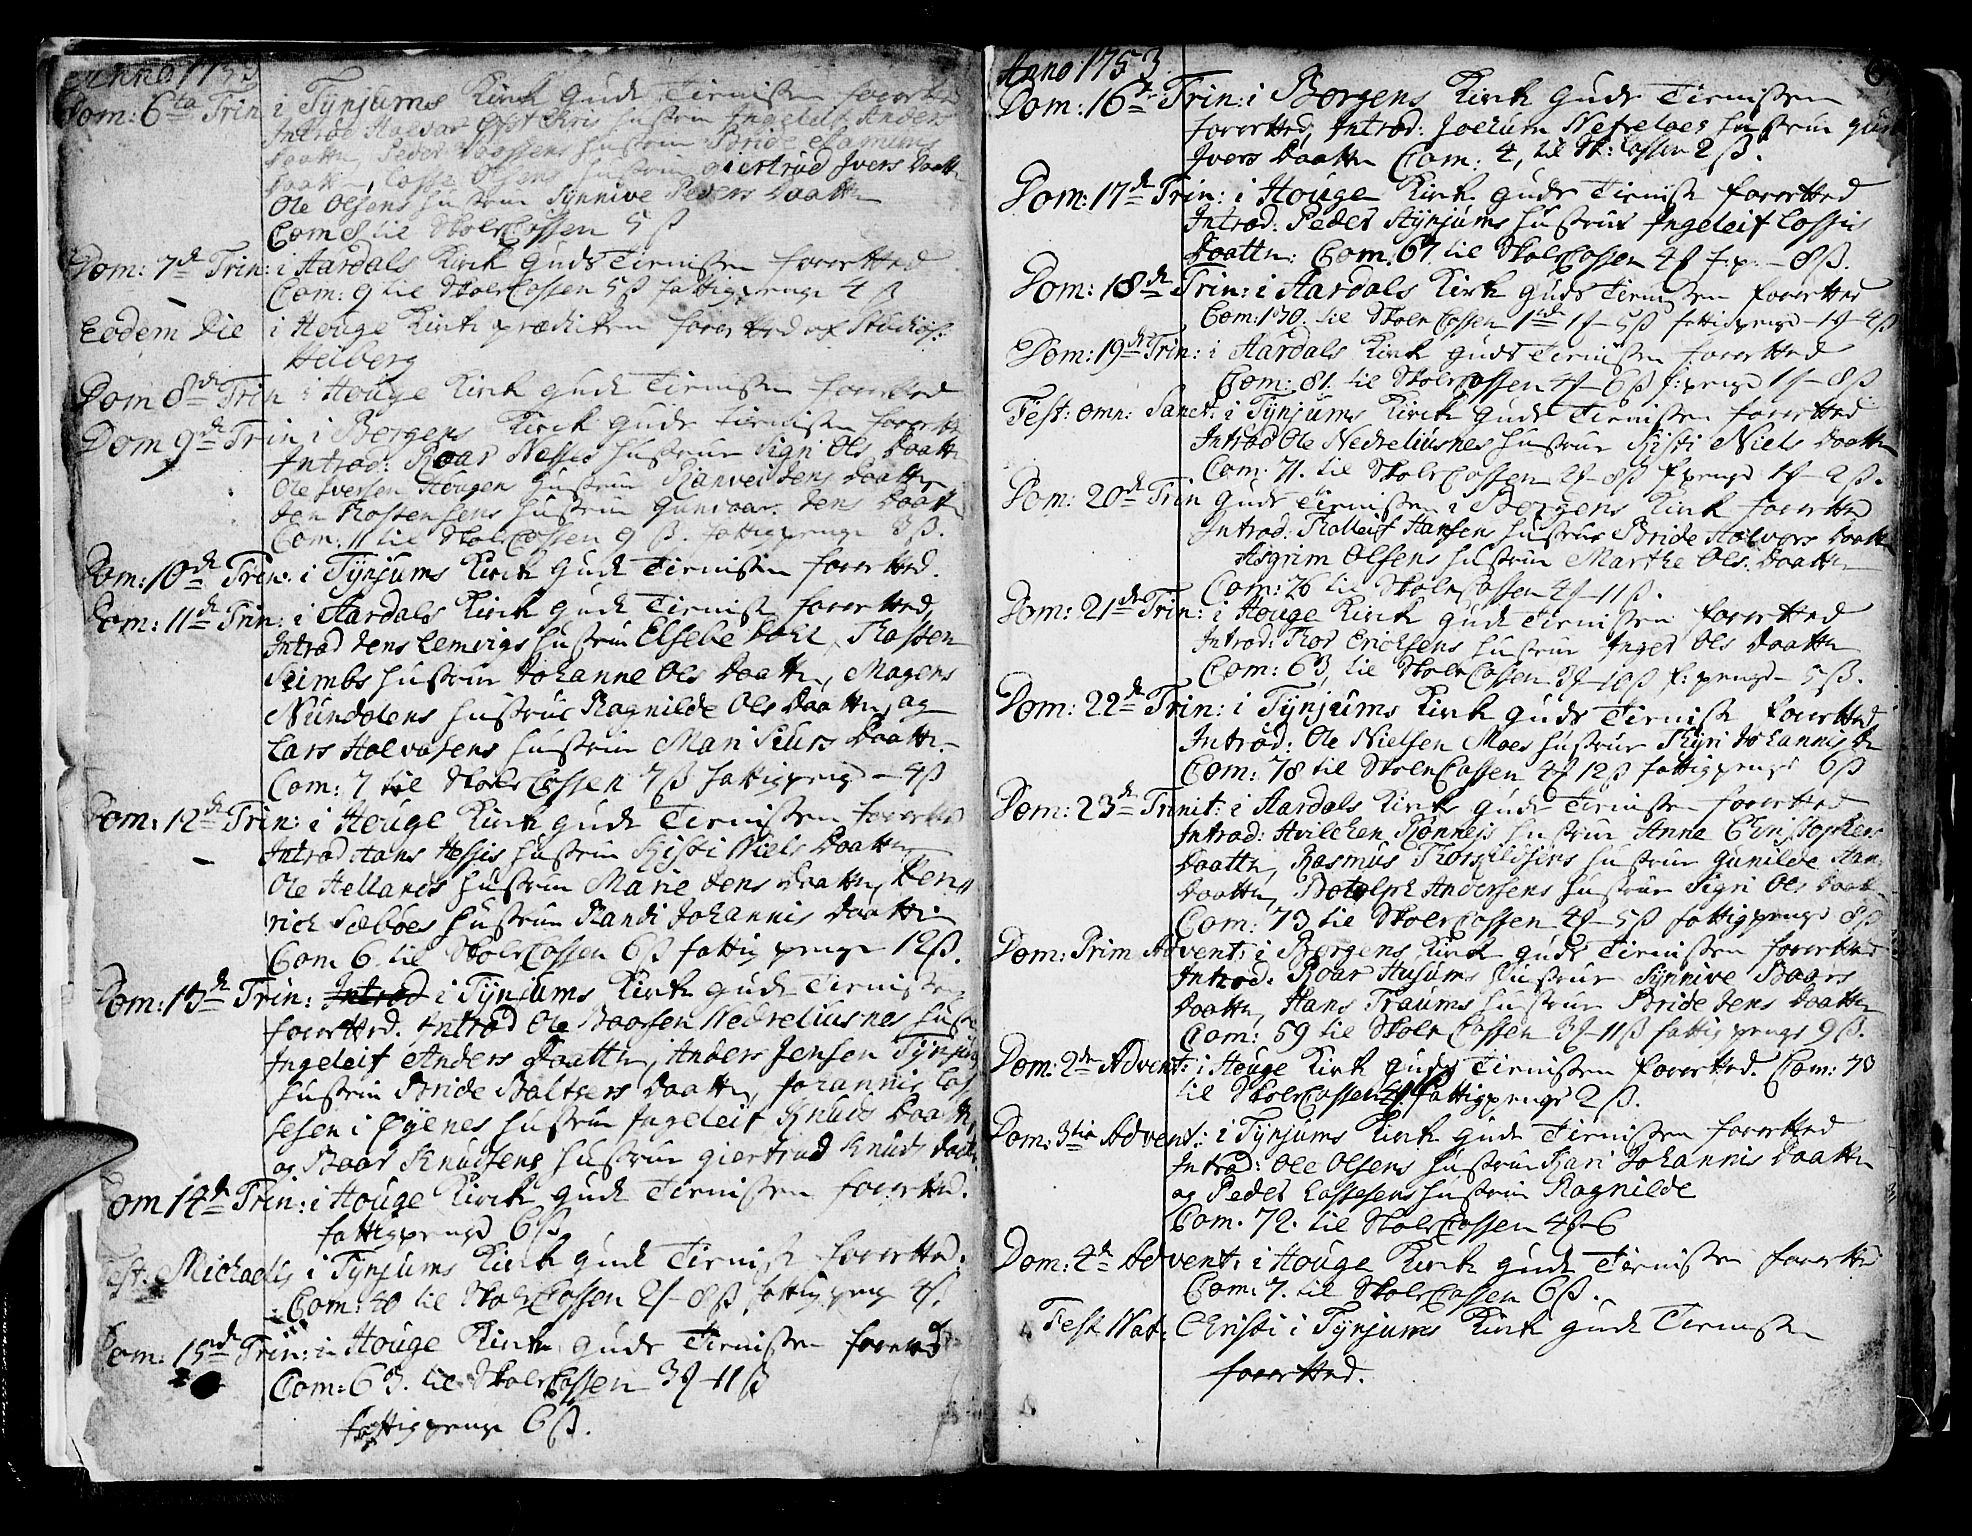 Anno 1753
Dom: 6ta Trin i Tynjums Kirck Guds Tienisten forretted
Introd Halvor Hustrue Ingeleif Anders
Daatter, Peder Hustrue Bride
Daatter, Lasse Olsens Hustrue Giertrud Ivers Daatt
Ole Olsens Hustrue Synnive Peders Daatter
Com til Skole Cassen 5 ß
Dom: 7de Trin: i Aardals Kirck Guds Tienisten forretted
Com: 9 til Skole Cassen 5ß fattigpenge 4 ß
Eodem Die i Houge Kirck prædiken forretted af Studios:
Heiberg
Dom 8de Trin i Houge Kirck Guds Tienisten forretted
Dom 9de Trin i Borgens Kirck Guds Tienisten forrett
Introd: Roar Nesses Hustrue Sigri Ols Daatter
Ole Iversen Hougen Hustrue Ranvei Jens Daatter
Jen Hustrue Gunvaar Jens Daatt
Com: 11 til Skole Cassen 9 ß. fattigpenge 8ß.
Dom: 10de Trin: i Tynjums Kirck Guds Tienisten forretted.
Dom: 11de Trin: i Aardals Kirck Guds Tienist forretted,
Introd Jens Lemvigs Hustrue Elsebe Dahl, Thosten
Seimbs Hustrue Johanne Ols Daatter, Magens
Nundalens Hustrue Ragnilde Ols Daatter, og
Lars Halvorsens Hustrue Mari Siurs Daatter.
Com: 7 til Skole Cassen 7ß fattigpenge - 4ß
Dom: 12de Trin: i Houge Kirck Guds Tienisten forretted
Introd Hans Hustrue Kisti Niels Daatter
Ole Hellands Hustrue Marie Jens Daatter, Hen
rich Sælboes Hustrue Randi Johannis Daatter
Com 6. til Skole Cassen 6ß fattig penge 12ß.
Dom: 13de Trin: Introd i Tynjums Kirck Guds Tienisten
forretted. Introd Ole Baarsen Nedreliusnes Hustr
Ingeleif Anders Daatter, Anders Jensen Tynjum
Hustrue Bride Baltzers Daatter, Johannis Las
sesen i Øyenes Hustrue Ingeleif Knuds Daatt
og Baar Knudsens Hustrue Giertrud Knuds Daatt
Dom 14de Trin: i Houge Kirck Guds Tienisten forretted.
fattigpenge 6ß
Fest. Michaelis i Tynjums Kirck Guds Tienist forretted.
Com: 40 til Skole Cassen 2f-8ß fattigpenge 4ß
Dom: 15nde Trin: i Houge Kirck Guds Tienisten forretted
Com: 63. til Skole Cassen 3f-11ß
fattigpenge 6ß.
Anno 1753
Dom: 16de Trin: i Borgens Kirck Guds Tienisten
forretted, Introd: Jochum Nefreloes Hustrue
Ivers Daatter Com: 4, til Sk: Cassen 2ß.
Dom: 17de Trin: i Houge Kirck Guds Tienist forretted
Introd: Peder Stynjums Hustrue Ingeleif Lassis
Daatter: Com. 67 til Skole Cassen 4f f:p. - 8ß.
Dom: 18de Trin: i Aardals Kirck Guds Tienisten forretted
Com: 130. til Skole Cassen 1rd 1f-5ß fattigpenge - 1f-4ß
Dom: 19de Trin: i Aardals Kirck Guds Tienisten forretted
Com: 81. til Skole Cassen 4f-6ß f:penge 1f-8ß
Fest: omn: Sanct: i Tynjums Kirck Guds Tienisten forretted
Introd Ole Nedreliusnes Hustrue Kysti Niels Daatter
Com. 71. til Skole Cassen 2f-8ß fpenge 1f-2ß.
Dom: 20de Trin Guds Tienisten i Borgens Kirck forretted
Introd: Tholleif Hansens Hustrue Bride Halvors Daatter
Asgrim Olsens Hustrue Marthe Ols Daatter
Com: 26 til Skole Cassen 4f-11ß.
Dom: 21de Trin: i Houge Kirck Guds Tienisten forretted
Introd: Thor Erichsens Hustrue Inger Ols Daatter
Com: 63, til Skole Cassen 2f-10ß f:penge - 5ß.
Dom: 22de Trin: i Tynjums Kirck Guds Tienist forretted,
Introd: Ole Nielsen Moes Hustrue Thyri Johannis D
Com: 78 til Skole Cassen 4f 12ß fattigpenge 6ß
Dom: 23de Trinit: i Aardals Kirck Guds Tienisten forretted
Introd: Hustrue Anna Christophers
Daatter, Rasmus Hustrue Gunilde Han
Daatter, Botolph Andersens Hustrue Sigri Ols Daatt
Com: 73 til Skole Cassen 4f-5ß fattigpenge 8ß
Dom: Prim Advent: i Borgens Kirck Guds Tienisten forretted
Introd: Roar Husums Hustrue Synnive Baars
Daatter, Hans Traums Hustrue Bride Jens Daatter
Com: 59 til Skole Cassen 3f-11ß fattigpenge 9ß.
Dom: 2de Advent: i Houge Kirck Guds Tienisten forretted. Com: 73
til Skole Cassen 4f fattigpenge 2ß.
Dom: 3tia Advent: i Tynjums Kirck Guds Tienisten forretted
Introd: Ole Olsens Hustrue Kari Johannis Daatter
og Peder Lassesens Hustrue Ragnilde
Com. 72. til Skole Cassen 4f-6
Dom: 4de Advent: i Houge Kirck Guds Tienisten forretted
Com: 7. til Skole Cassen 6ß.
Fest Nat: Christi i Tynjums Kirck Guds Tienisten
forretted.